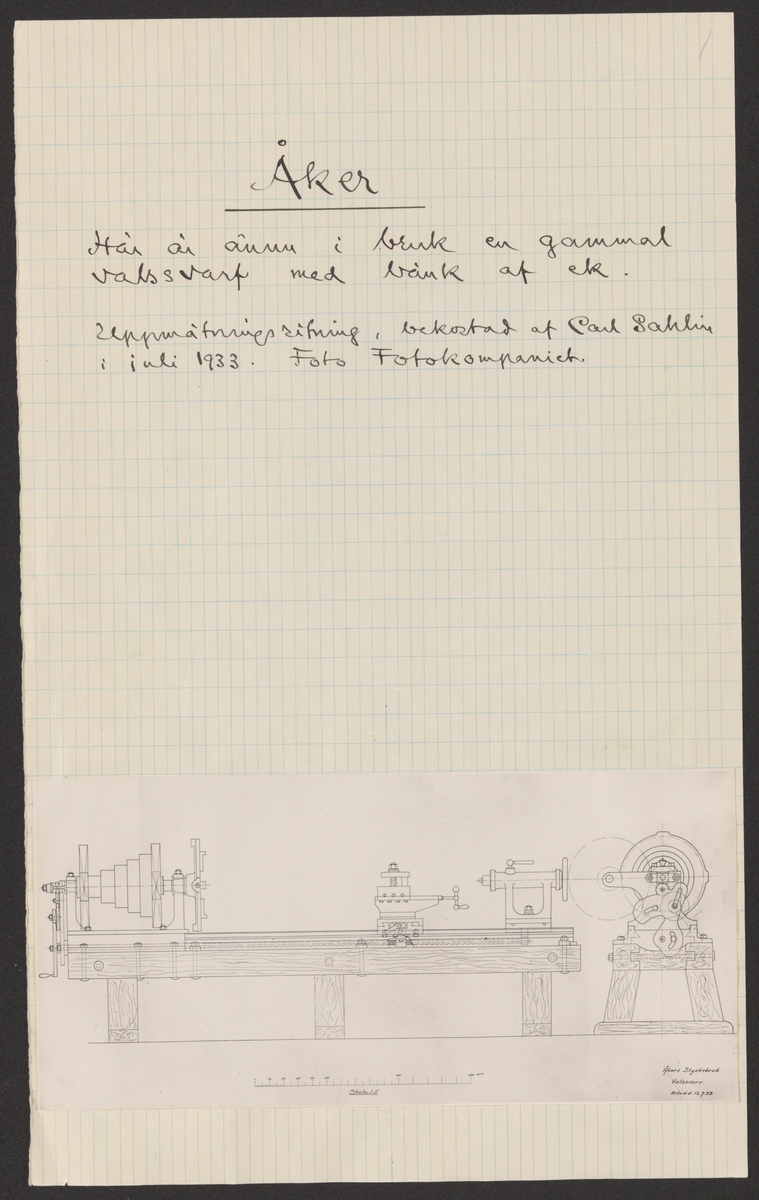 Åker
Här är ännu i bruk en gammal
valssvarf med bänk af ek.
Uppmätningsritning, bekostad af Carl Sahlin
i juli 1933. Foto Fotokompaniet.
Skala 1:5
Åkers Styckebruk
Valssvarv
Ritad 12.7.33